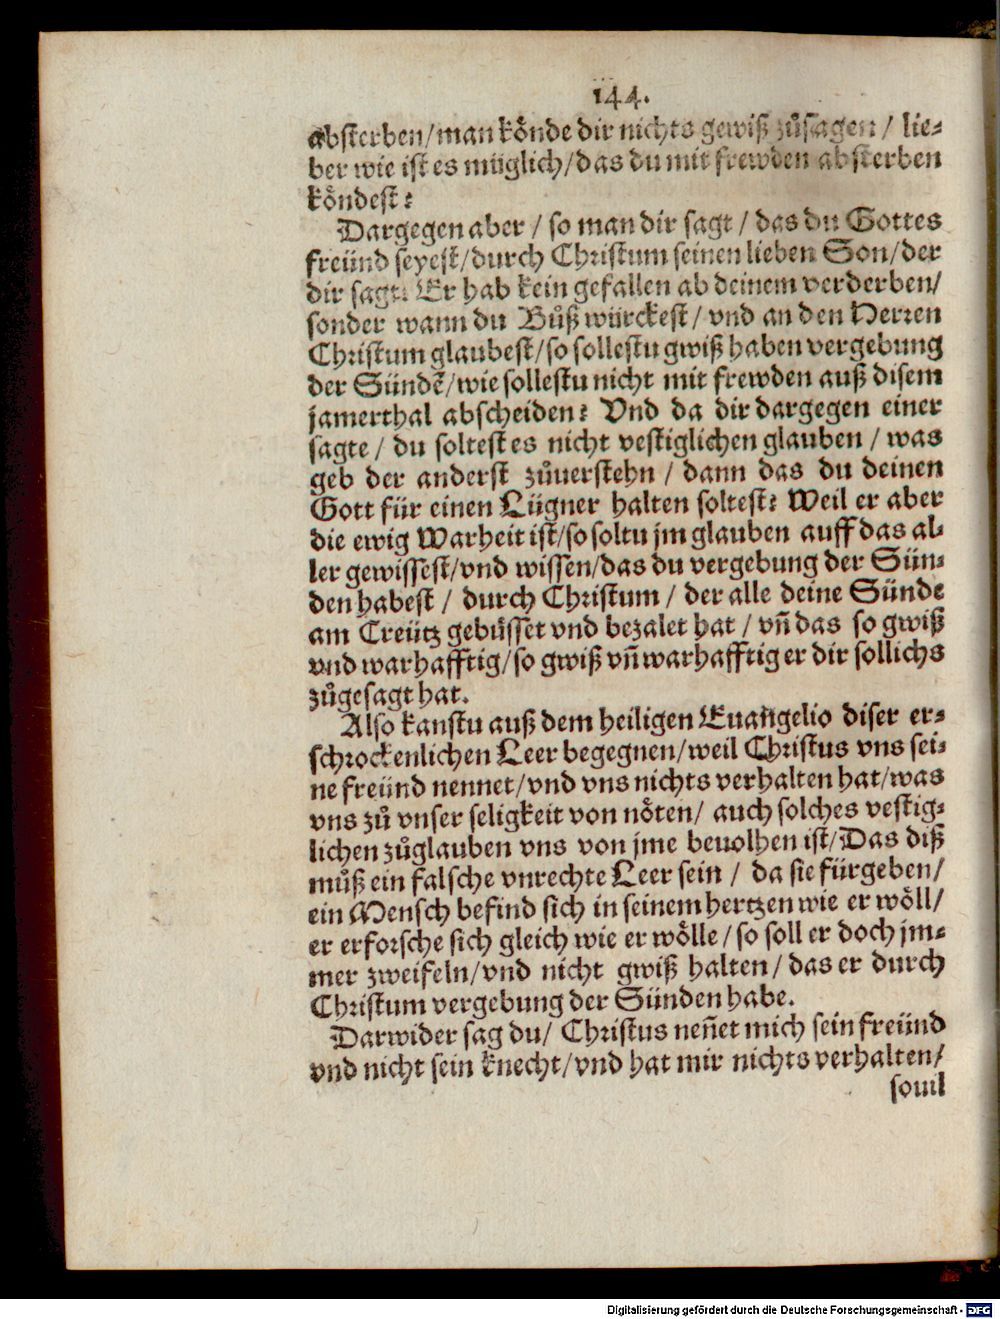 144.
absterben/man koͤnde dir nichts gewiß zuͦsagen / lie-
ber wie ist es müglich/das du mit frewden absterben
koͤndest?
Dargegen aber / so man dir sagt / das du Gottes
freünd seyest/durch Christum seinen lieben Son/der
dir sagt: Er hab kein gefallen ab deinem verderben/
sonder wann du Buͦß würckest/ vnd an den Herren
Christum glaubest/so sollestu gwiß haben vergebung
der Sündẽ/wie sollestu nicht mit frewden auß disem
jamerthal abscheiden? Vnd da dir dargegen einer
sagte / du soltest es nicht vestiglichen glauben / was
geb der anderst zuͦuerstehn / dann das du deinen
Gott für einen Lügner halten soltest? Weil er aber
die ewig Warheit ist/so soltu jm glauben auff das al-
ler gewissest/vnd wissen/das du vergebung der Sün-
den habest / durch Christum / der alle deine Sünde
am Creütz gebuͤsset vnd bezalet hat / vñ das so gwiß
vnd warhafftig/so gwiß vñ warhafftig er dir sollichs
zuͦgesagt hat.
Also kanstu auß dem heiligen Euangelio diser er-
schrockenlichen Leer begegnen/weil Christus vns sei-
ne freünd nennet/vnd vns nichts verhalten hat/was
vns zuͦ vnser seligkeit von noͤten/ auch solches vestig-
lichen zuͦglauben vns von jme beuolhen ist/Das diß
muͦß ein falsche vnrechte Leer sein / da sie fürgeben/
ein Mensch befind sich in seinem hertzen wie er woͤll/
er erforsche sich gleich wie er woͤlle / so soll er doch jm-
mer zweifeln/vnd nicht gwiß halten / das er durch
Christum vergebung der Sünden habe.
Darwider sag du/ Christus neñet mich sein freünd
vnd nicht sein knecht/vnd hat mir nichts verhalten/
souil
Digitalisierung gefördert durch die Deutsche Forschungsgemeinschaft - DFG